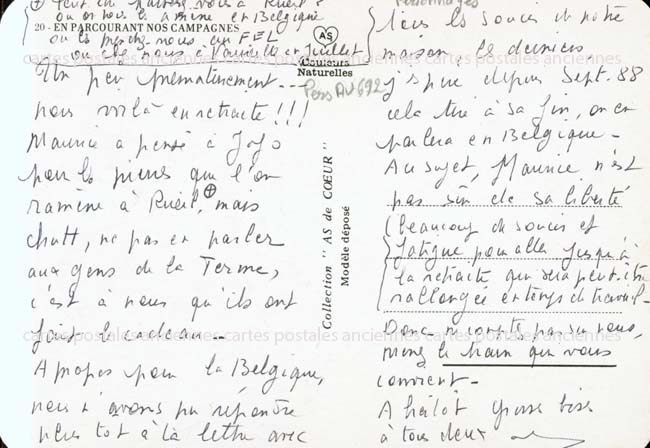 ⊕ peut on passer vous à Rueil?
ou on vous les amène en Belgique
20 - EN PARCOURANT NOS CAMPAGNES
ou les prenez-nous en
ou chez nous à en Juillet
AS
Couleurs
Naturelles
Pers AV 692
Un peu prématurément...
nous voilà en retraite!!!
Maurice a pensé à Jojo
pour les pierres que l'on
ramène à Rueil,⊕ mais
chutt, ne pas en parler
aux gens de la Terme,
c'est à nous qu'ils ont
fait le cadeau...
A propos pour la Belgique,
nous n'avons pu répondre
plus tôt à la lettre avec
Collection "AS de CŒUR"
Modèle déposé
Personnages
tous les soucis de notre
maison, les derniers
j'espère depuis Sept. 88
cela tire à sa fin, on en
parlera en Belgique -
Au sujet, Maurice n'est
pas sûr de sa liberté
(beaucoup de soucis et
fatigue pour aller jusqu'à
la retraite qui sera peut-être
rallongée en temps de travail -
Donc ne compte pas sur nous,
prenez le train qui vous
convient -
A bientôt grosses bises
à tous deux
cartes postales anciennes cartes postales anciennes cartes postales anciennes
cartes postales anciennes cartes postales anciennes cartes postales anciennes